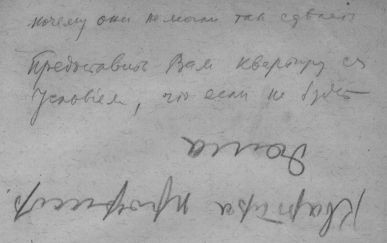 почему они не могли так сделать
Предоставить Вам квартиру с
условием, что если не будет
дома
Квартира